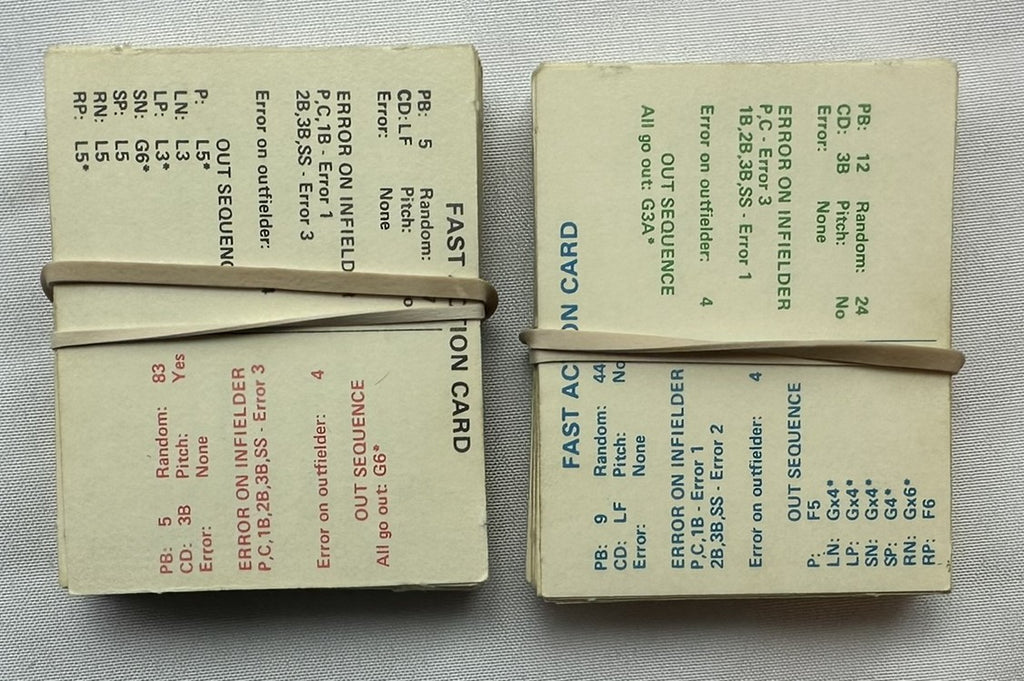 FAST ACTION CARD
PB: 5 Random:
CD: LF Pitch:
Error: None
ERROR ON INFIELD
P,C,1B - Error 1
2B,3B,SS - Error 3
Error on outfielder:
OUT SEQUENC
P: L5*
LN: L3
LP: L3*
SN: G6*
SP: L5
RN: L5
RP: L5*
PB: 5 Random: 83
CD: 3B Pitch: Yes
Error: None
ERROR ON INFIELDER
P,C,1B,2B,3B,SS - Error 3
Error on outfielder: 4
OUT SEQUENCE
All go out: G6*
PB: 12 Random: 24
CD: 3B Pitch: No
Error: None
ERROR ON INFIELDER
P,C - Error 3
1B,2B,3B,SS - Error 1
Error on outfielder: 4
OUT SEQUENCE
All go out: G3A*
FAST ACTION CARD
PB: 9 Random: 44
CD: LF Pitch: No
Error: None
ERROR ON INFIELDER
P,C,1B - Error 1
2B,3B,SS - Error 2
Error on outfielder: 4
OUT SEQUENCE
P: F5
LN: Gx4*
LP: Gx4*
SN: Gx4*
SP: G4*
RN: Gx6*
RP: F6